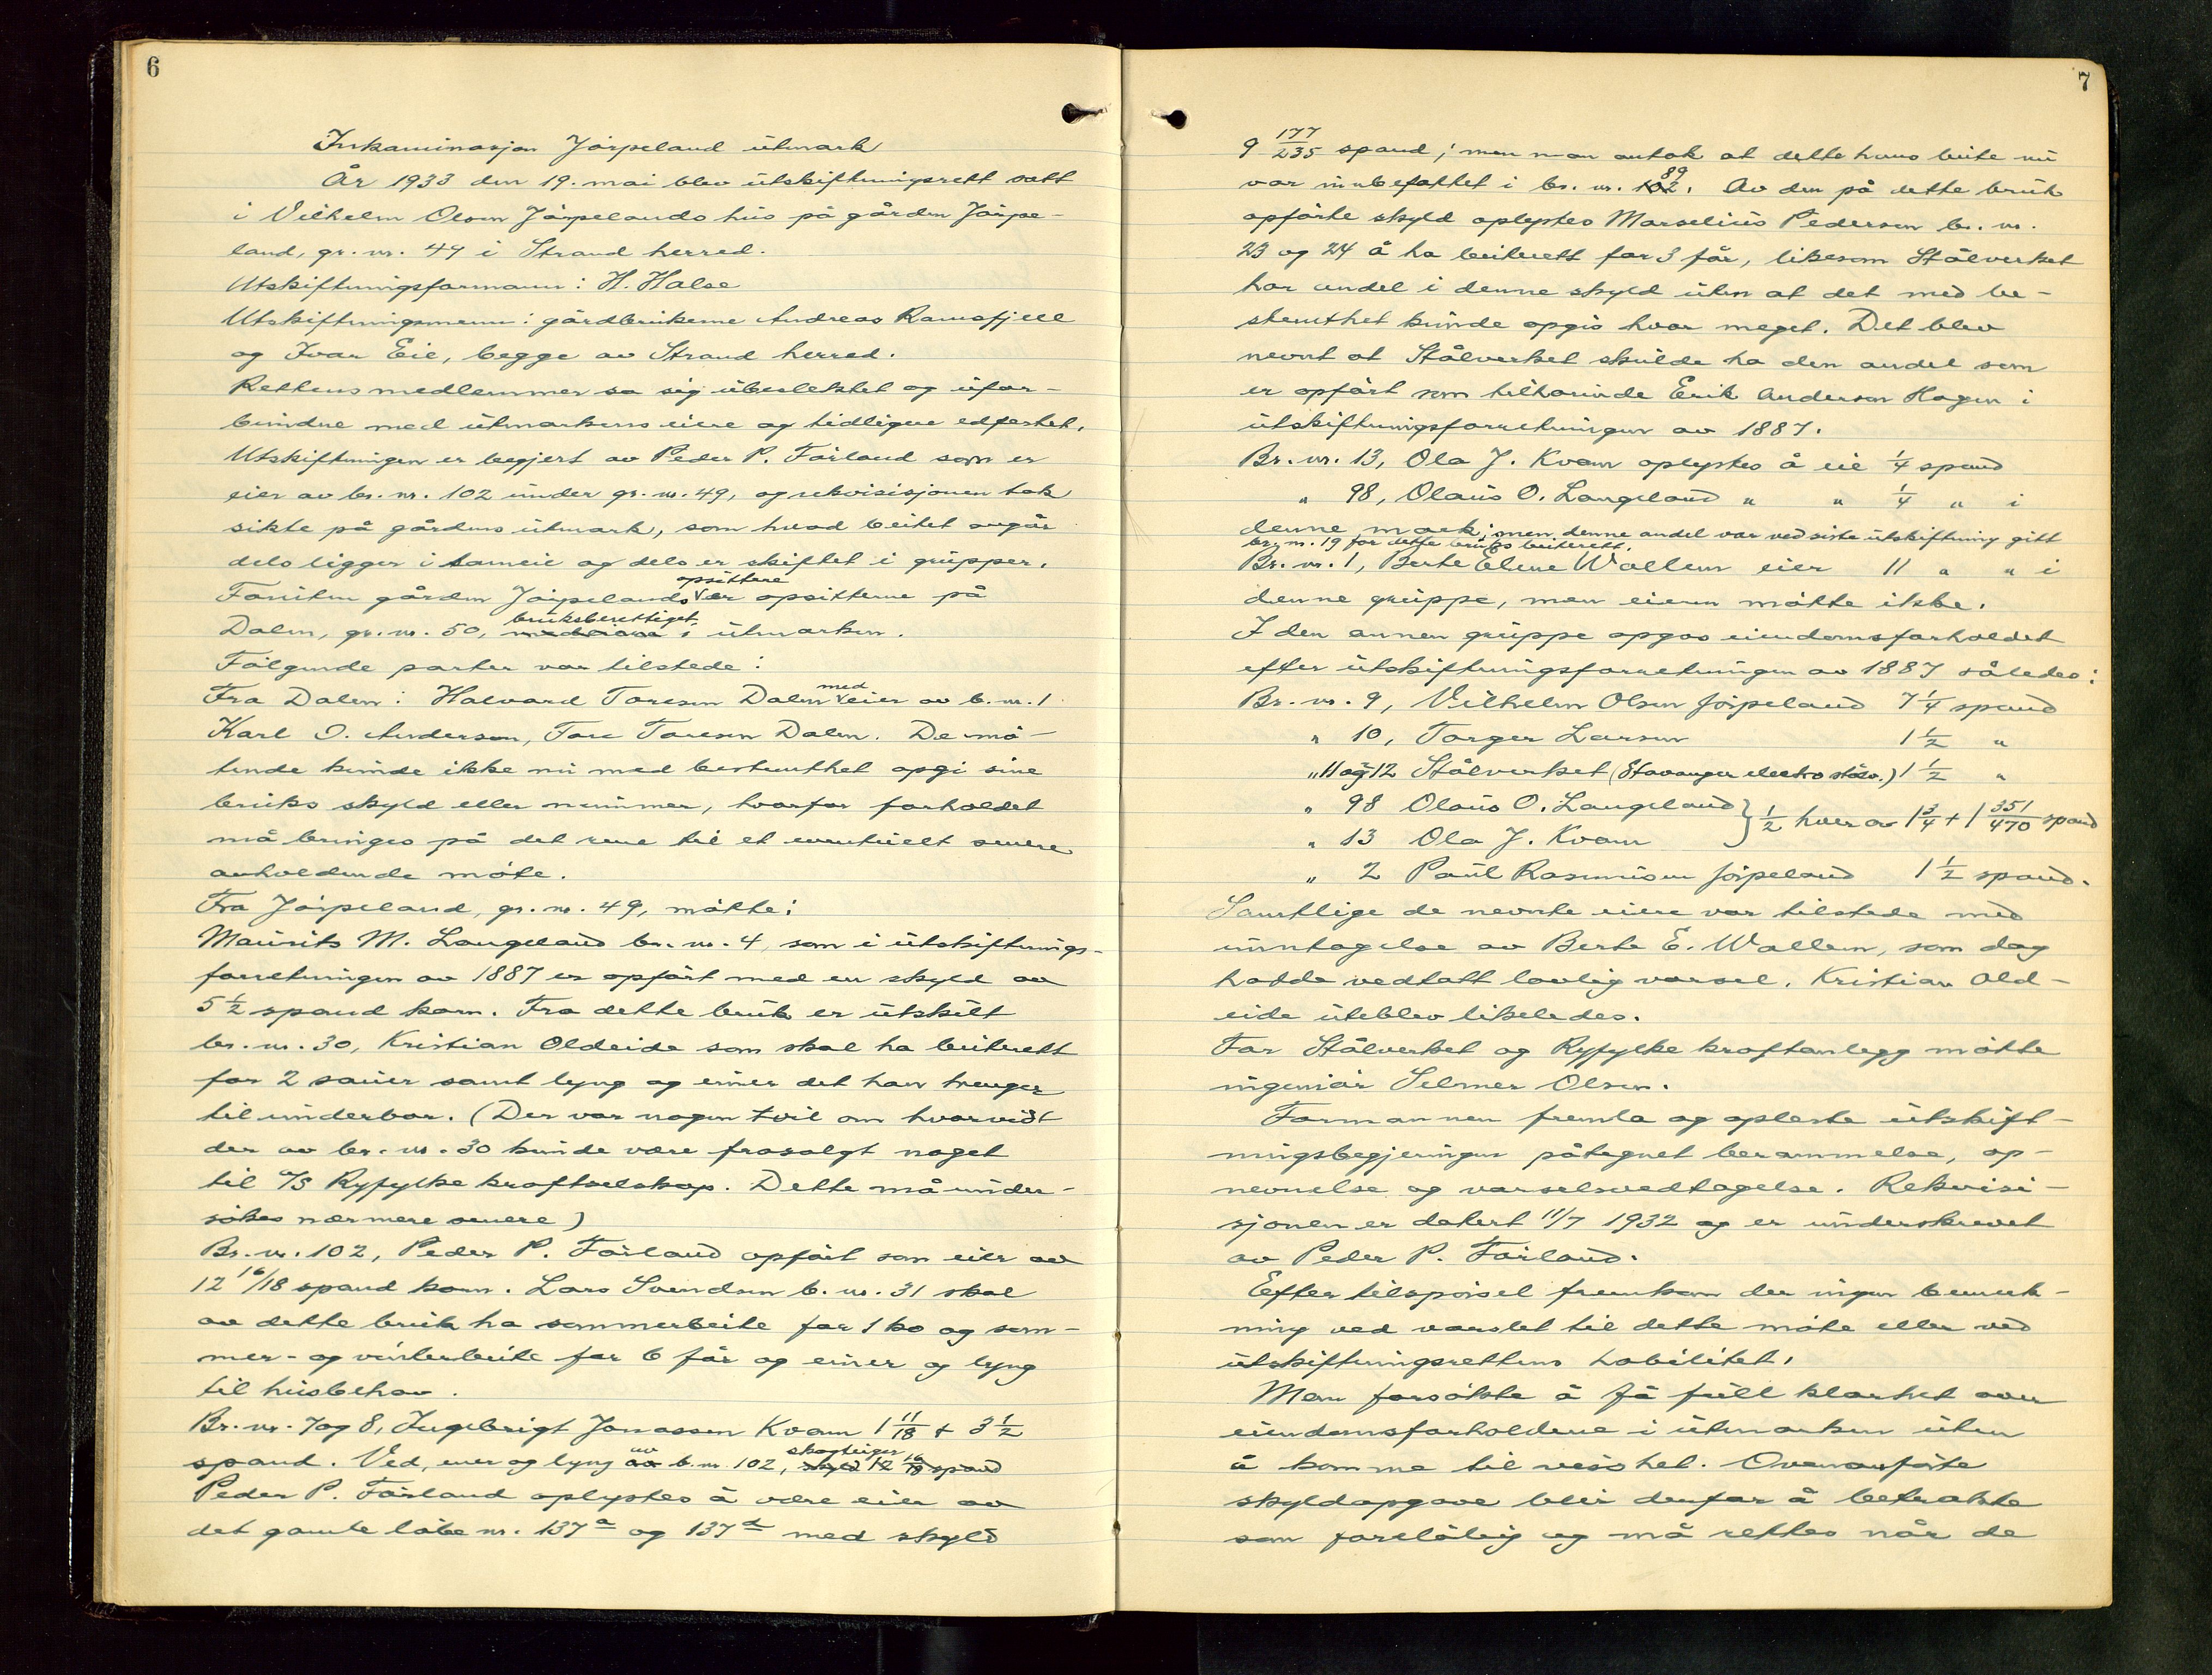 6
Inkaminasjon Jörpeland utmark
År 1933 den 19. mai blev utskiftningsrett satt
i Vilhelm Olsen Jörpelands hus på gården Jörpe-
land, gr. nr. 49 i Strand herred.
Utskiftningsformann: H. Halse
Utskiftningsmenn: gårdbrukerne Andreas Ramsfjell
og Ivar Eie, begge av Strand herred.
Rettens medlemmer sa sig ubeslektet og ufor-
bundne med utmarkens eiere og tidligere edfestet.
Utskiftningen er begjert av Peder P. Förland som er
eier av br. nr. 102 under gr. nr. 49, og rekvisisjonen tok
sikte på gårdens utmark, som hvad beitet angår
dels ligger i sameie og dels er skiftet i grupper.
Foruten gården Jörpelands opsittere er opsitterne på
Dalen, gr. nr. 50, bruksberettiget i utmarken.
Fölgende parter var tilstede:
Fra Dalen: Halvard Toresen Dalen med eier av b. nr. 1
Karl O. Anderson, Tore Toresen Dalen. De mö-
tende kunde ikke nu med bestemthet opgi sine
bruks skyld eller nummer, hvorfor forholdet
må bringes på det rene til et eventuelt senere
avholdende möte.
Fra Jörpeland, gr. nr. 49, mötte:
Maurits M. Langeland br. nr. 4, som i utskiftnings-
forretningen av 1887 er opfört med en skyld av
5 1/2 spand korn. Fra dette bruk er utskilt
br. nr. 30, Kristian Oldeide som skal ha beiterett
for 2 sauer samt lyng og einer det han trenger
til underbor. (Der var nogen tvil om hvorvidt
der av br. nr. 30 kunde være frasolgt noget
til A/S Ryfylke kraftselskap. Dette må under-
sökes nærmere senere)
Br. nr. 102, Peder P. Förland opfört som eier av
12 16/18 spand korn. Lars Svendsen b. nr. 31 skal
av dette bruk ha sommerbeite for 1 ko og som-
mer- og vinterbeite for 6 får og einer og lyng
til husbehov.
Br. nr. 7 og 8, Ingebrigt Jonassen Kvam 1 11/18 + 3 1/2
spand. Ved, ener og lyng av b. nr. 102, skogteiger 12 16/18 spand
Peder P. Förland oplystes å være eier av
det gamle löbe nr. 137 a og 137 d med skyld
7
9 177/235 spand; men man antok at dette hans beite nu
var innbefattet i br. nr. 89. Av den på dette bruk
opförte skyld oplystes Marselius Pedersen br. nr.
23 og 24 å ha beiterett for 3 får, likesom Stålverket
har andel i denne skyld uten at det med be-
stemthet kunde opgis hvor meget. Det blev
nevnt at Stålverket skulde ha den andel som
er opfört som tilhörende Erik Anderson Hagen i
utskiftningsforretningen av 1887.
Br. nr. 13, Ola J. Kvam oplystes å eie 1/4 spand
" 98, Olaus O. Langeland " " 1/4 " i
denne mark; men denne andel var ved siste utskiftning gitt
br. nr. 19 for dette bruks beiterett.
Br. nr. 1, Berte Elene Wallem eier 11 " " i
denne gruppe, men eieren mötte ikke.
I den annen gruppe opgas eiendomsforholdet
efter utskiftningsforretningen av 1887 således:
Br. nr. 9, Vilhelm Olsen Jörpeland 7 1/4 spand
" 10, Torger Larsen 1 1/2 "
" 11 og 12 Stålverket (Stavanger electro stålv.) 1 1/2 "
" 98 Olaus O. Langeland } 1/2 hver av 1 3/4 + 1 351/470 spand
" 13 Ola J. Kvam
" 2 Paul Rasmusen Jörpeland 1 1/2 spand.
Samtlige de nevnte eiere var tilstede med
unntagelse av Berte E. Wallem, som dog
hadde vedtatt lovlig varsel. Kristian Old-
eide uteblev likeledes.
For Stålverket og Ryfylke kraftanlegg mötte
ingeniör Selmer Olsen.
Formannen fremla og opleste utskift-
ningsbegjeringen påtegnet berammelse, op-
nevnelse og varselsvedtagelse. Rekvisi-
sjonen er datert 11/7 1932 og er underskrevet
av Peder P. Förland.
Efter tilspörsel fremkom der ingen bemerk-
ning ved varslet til dette möte eller ved
utskiftningsrettens habilitet.
Man forsökte å få full klarhet over
eiendomsforholdene i utmarken uten
å komme til visshet. Ovenanförte
skyldopgave blir derfor å betrakte
som forelöbig og må rettes når de